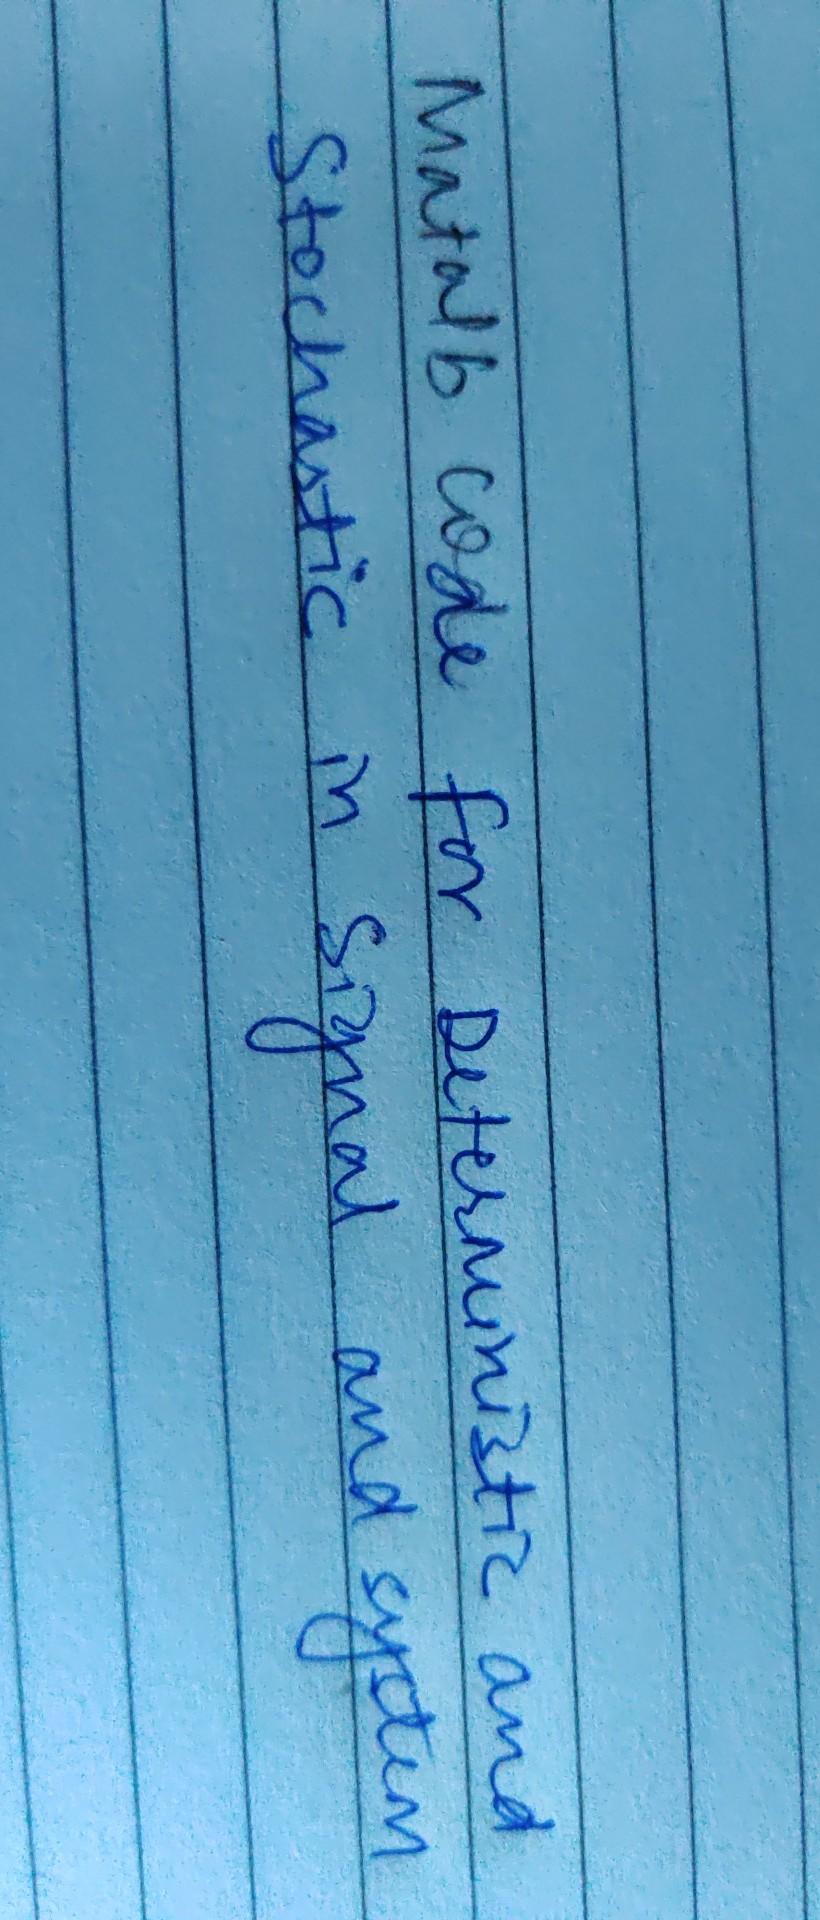 Matalb code for Deterministic and
Stochastic in Signal and system